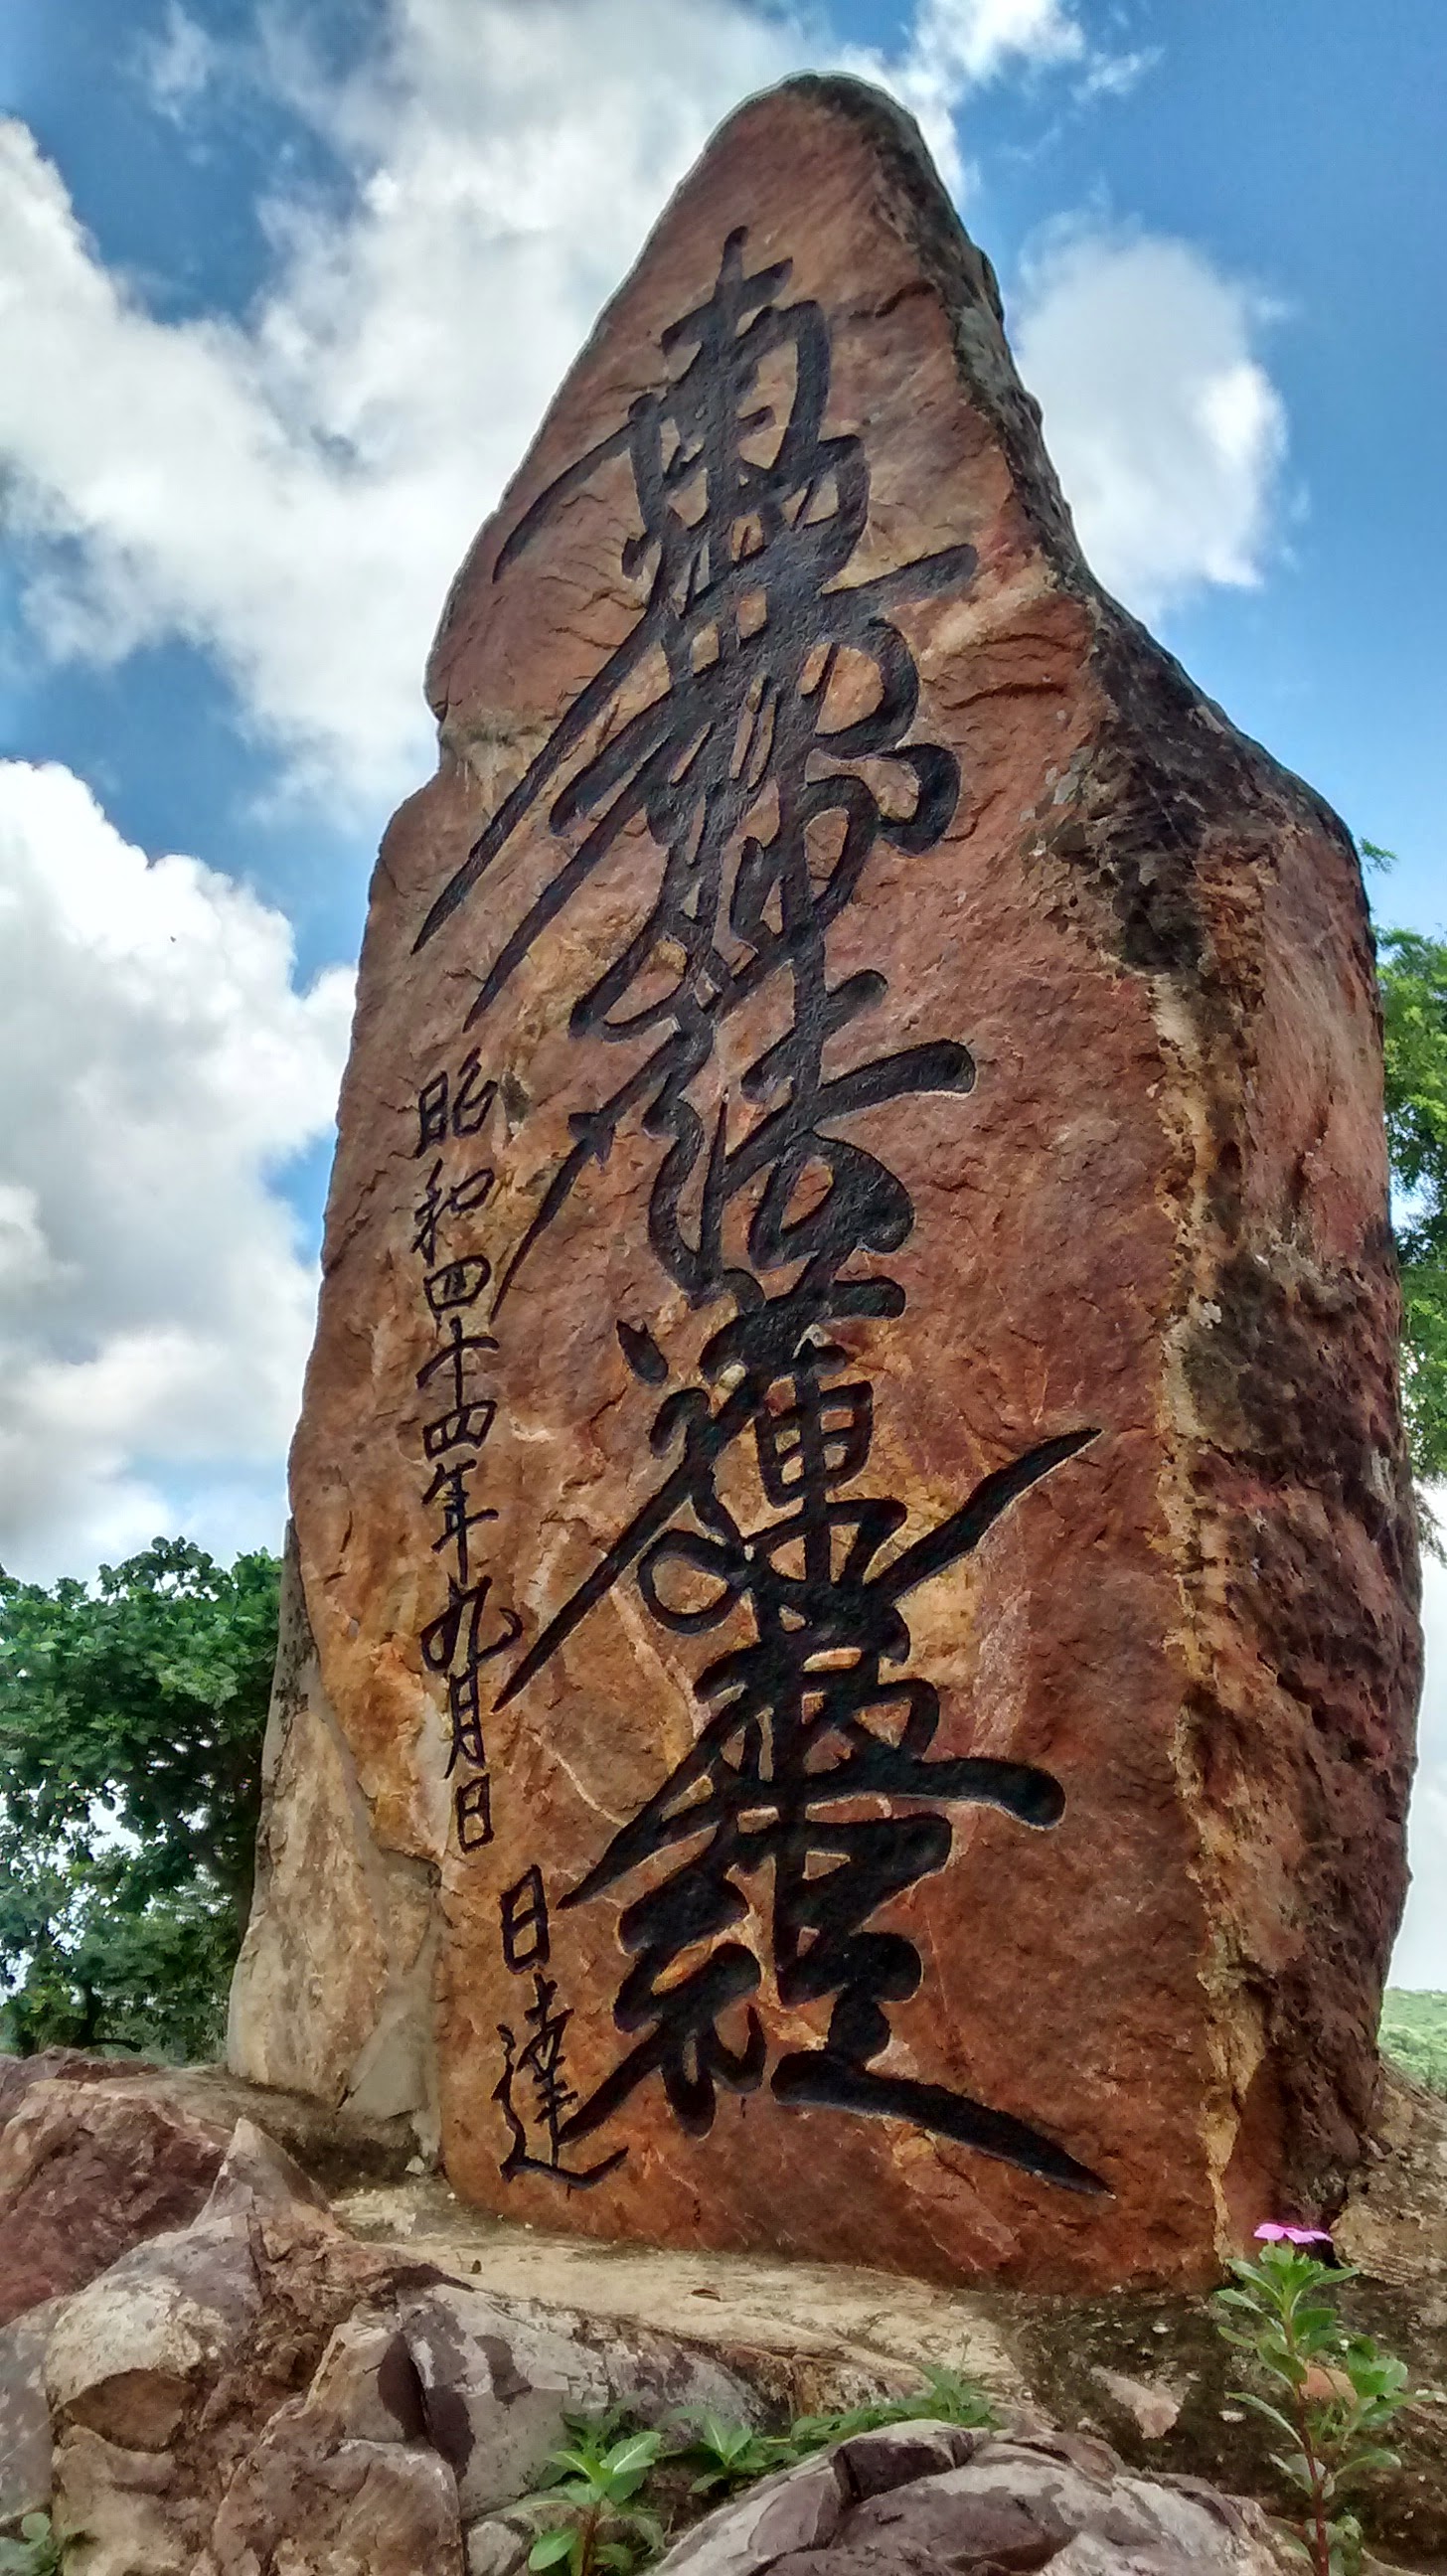 南無妙法蓮華經
昭和四十四年九月日
日達